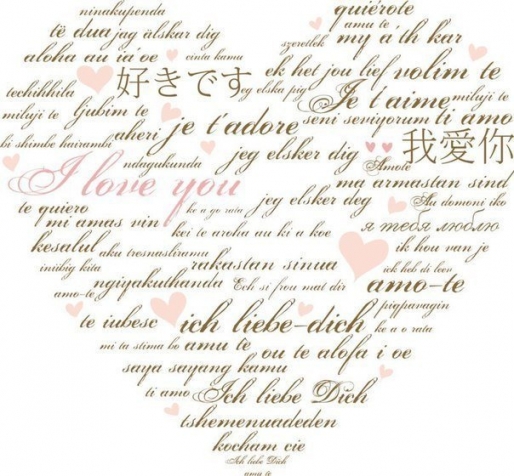 ninakupenda quiérote
të dua jag älskar dig amu te
aloha au ia'oe cinta kamu szeretlek my a'th kar
techihhila 好きです jeg elska pig ek het jou lief volim te
Je t'aime miluji te
miluji te ljubim te seni seviyorum ti amo
aheri je t'adore
bi shimbe hairambi jeg elsker dig 我愛你
ndagukunda Amote
I love you ma armastan sind
te quiero ke a go rata jeg elsker deg Au domoni iko
mi amas vin kei te aroha au ki a koe я тебя люблю
kesalul aku tresnasliramu ik hou van je
iniibig kita rakastan sinua ich heb di leev
ngiyakuthanda Ech si frou mat dir amo-te
amo-te pigpanagin
te iubesc ich liebe-dich ke a o rata
mi ta stima bo amu te ou te alofa i oe
saya sayang kamu
ti amo Ich liebe Dich
tshemenuadeden
kocham cie
Ich liebe Dich
amu te